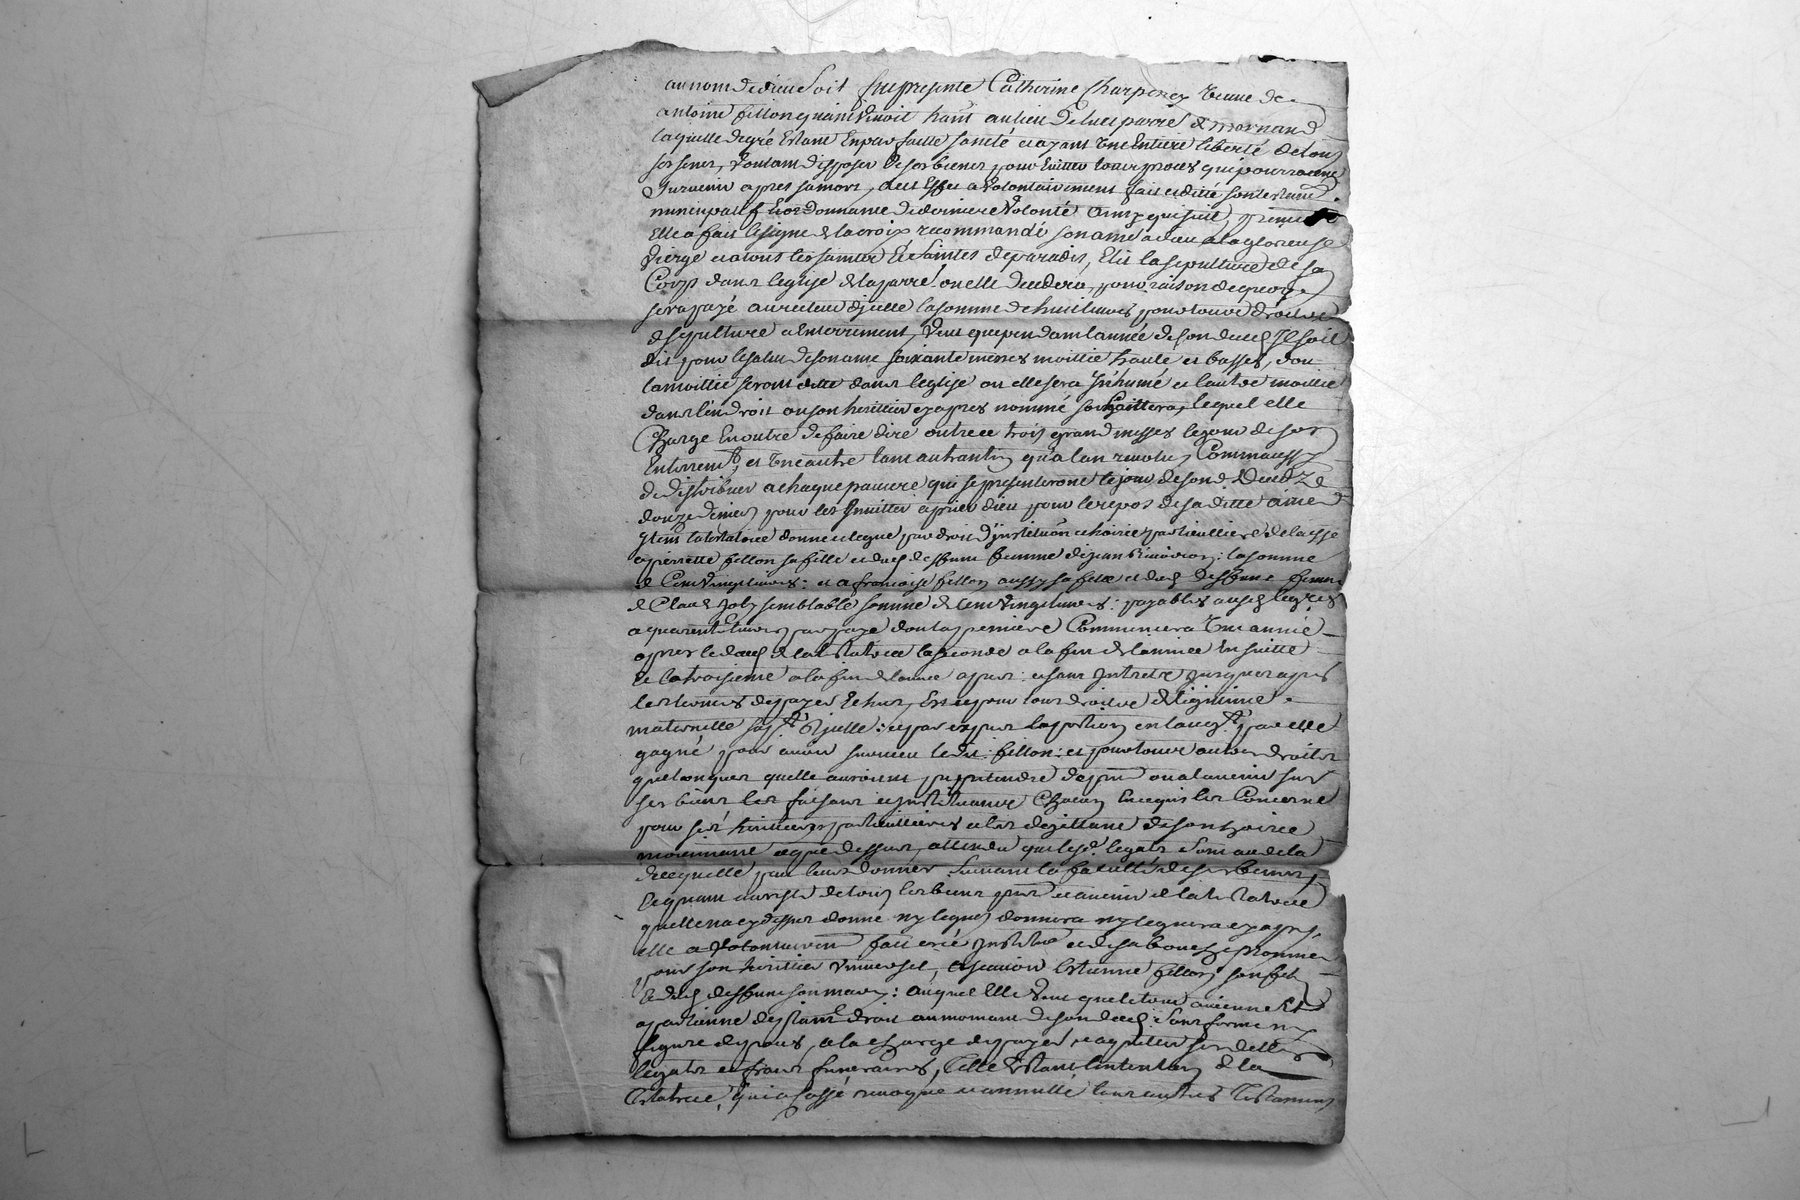 au nom de dieu soit fut presente Catherine Charpenay veuve de
antoine fillon quand vivoit hant au lieu de
laquelle de gré Estant En parfaitte santé et ayant Une Entiere liberté de tous
ses sens, voulant disposer de ses biens, pour Eviter tous proces qui pourroient
survenir apres sa mort, a cet Effet a volontairement fait et ditté son testament
nuncupatif Et ordonnance de derniere volonté Comme qui suit, premierement
Elle a fait le signe de la croix recommandé son ame a dieu a la glorieuse
vierge et a tous les saints Et saintes de paradis, Elit la sepulture de son
Corps dans l'eglise de la parre ou elle decedera, pour raison de quoy
sera payé au recteur d'icelle la somme de huit livres pour tous droits
de sepulture et Enterrement, veut que pendant l'année de son deces Il soit
dit pour le salut de son ame soixante messes moittié haute et basses, dont
la moittié seront ditte dans l'eglise ou elle sera Inhumé et l'autre moittié
dans l'endroit ou son heritier cy apres nommé souhaittera, lequel elle
Charge En outre de faire dire outre ce trois grand messes le jour de son
Enterremt, et Une autre tant au quarantin qu'a l'an revolu, Comme aussy
de distribuer a chaque pauvre qui se presenteront le jour de son d. Deces
douze deniers pour les Inviter a prier dieu pour le repos de sa ditte ame
Item la testatrice donne et legue par droit d'institution et hoirie particulliere delaisse
a pierrette fillon sa fille et dud deffunt femme de jean la somme
de Cent vingt livres : et a francoise fillon aussy sa fille et dud deffunt femme
de Claude Joly semblable somme de Cent vingt livres : payables auxd legats
a quarente livres par paye dont la premiere Commencera Une année
apres le deces de la testatrice la seconde a la fin de l'année En suitte
Et la troisieme a la fin de l'année apres : et sans Interest jusques apres
les termes de payes Echus, Et ce pour tous droits de legitime
maternelle d'icelle : et par expres la portion en l'augt par elle
gagné pour avoir survecu led fillon : et pour tous autres droits
quelconques quelle auroient pu pretendre a present ou a l'avenir sur
ses biens les faisant et Instituant Chacun En ce qui les Concerne
pour ses heritieres particullieres et les dejettant de son hoirie
moiennant ce que dessus, attendu que lesd. legats sont au dela
de ce quelle peut leurs donner suivant la faculté de ses biens,
Et quant au reste de tous les biens pnts et avenir de la testatrice
quelle n'a cy dessus donné ny legué, donnera ny leguera cy apres,
elle a volontairement fait creé Institué et de sa bouche Nommé
pour son heritier universel, Estienne fillon son fils
Et dud deffunt son mary : auquel Elle veut que le tout avienne Et
apartienne de plain droit au moment de son deces sans forme ny
figure de proces, a la charge de payer et aquitter ses dettes
legats et frais funeraires, telle Estant l'intention de la
testatrice, qui a cassé revoqué et annullé tous autres Testaments